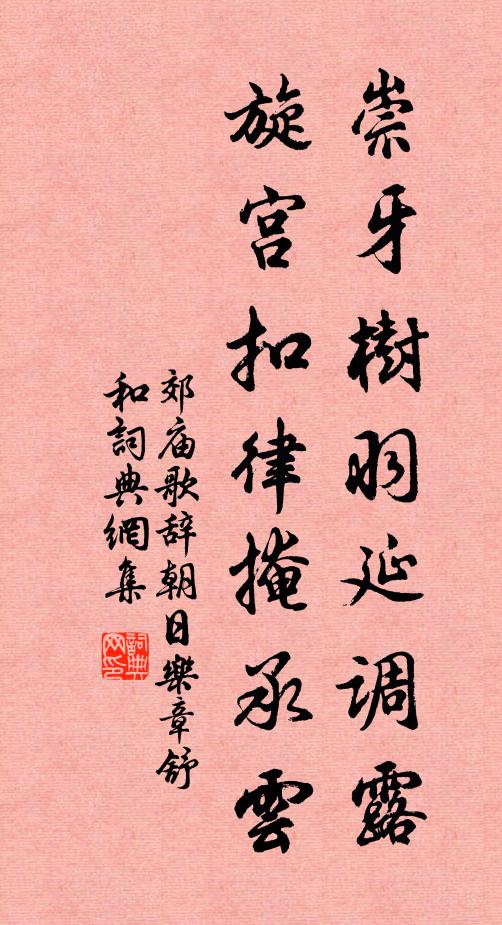 崇牙樹羽延调露
旋宫扣律掩承雲
郊庙歌辞朝日樂章舒
和詞典網集
詞典網印